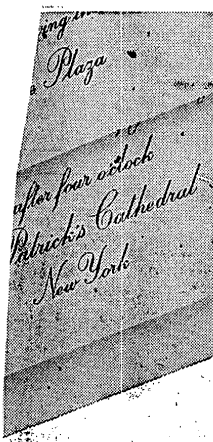 Plaza
after four o'clock
Patrick's Cathedral
New York